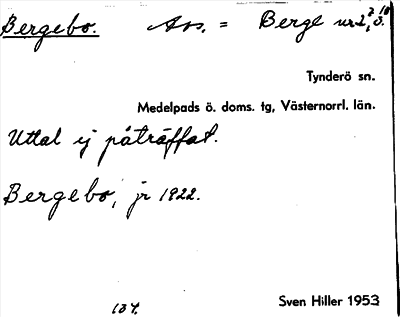 Bergebo. Avs. = Berge nr 2,
Tynderö sn.
Medelpads ö. doms. tg, Västernorrl. län.
Uttal ej påträffat.
Bergebo, jr 1922.
134. Sven Hiller 1953